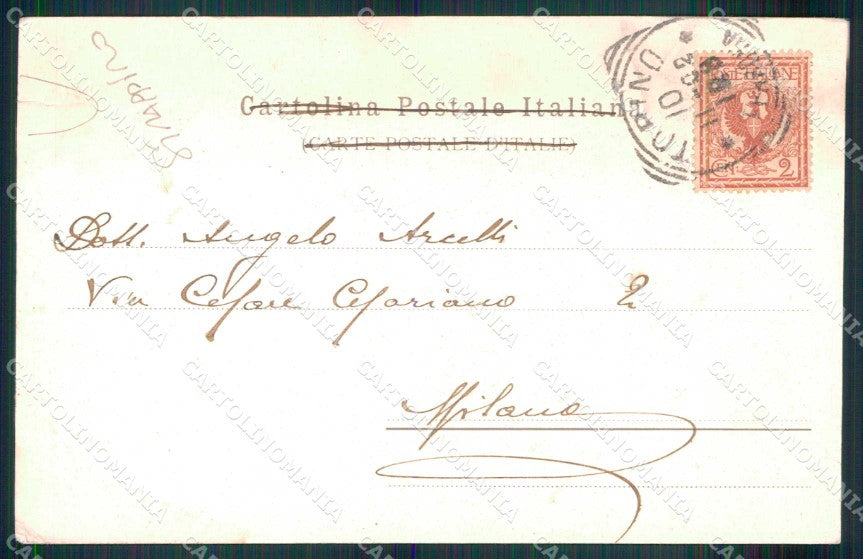 STRAPPINO
Cartolina Postale Italiana
(CARTE POSTALE D'ITALIE)
TORINO
2
Dott. Angelo Arcelli
Via Cesare Cesariano 2
Milano
CARTOLINOMANIA